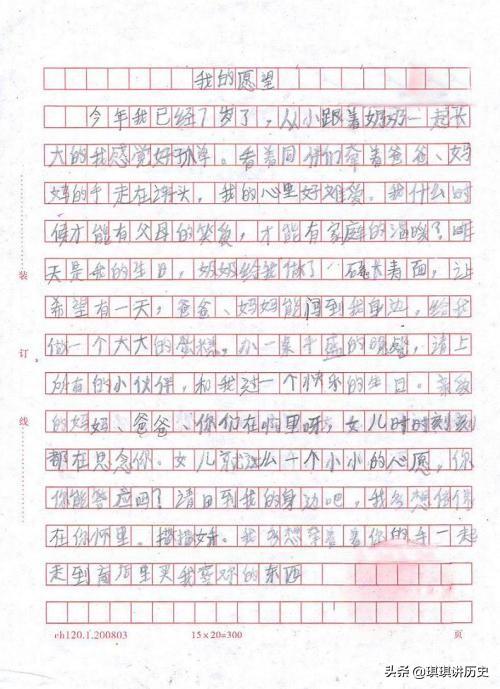 我的愿望
今年我已经7岁了，从小跟着奶奶一起长
大的我感觉好孤单。看着同伴们牵着爸爸、妈
妈的手走在街头，我的心里好难受。我什么时
候才能有父母的笑，才能有家庭的温暖？昨
天是我的生日，奶奶给我做了一碗长寿面，
希望有一天，爸爸、妈妈能回到我身边，给我
做一个大大的蛋糕，办一桌丰盛的晚餐，请上
所有的小伙伴，和我过一个快乐的生日。亲爱
的妈妈、爸爸、你们在哪里呀，女儿时时刻刻
都在思念你。女儿就这么一个小小的心愿，你
你能答应吗？请回到我的身边吧，我多想
在你怀里。我多想牵着你的手一起
走到商场里买我喜欢的东西
装
订
线
ch120.1.200803 15×20=300 页
头条 @琪琪讲历史